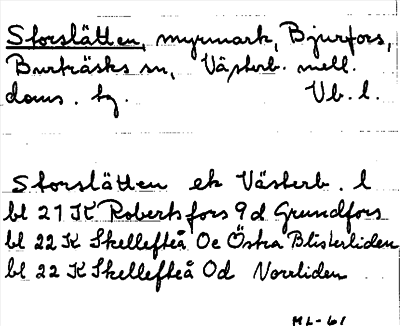 Storslåtten, myrmark, Bjurfors,
Burträsks sn, Västerb. mell.
doms. tg. Vb. l.
Storslåtten ek Västerb. l
bl 21 K Robertsfors 9d Grundfors
bl 22 K Skellefteå 0e Östra Blisterliden
bl 22 K Skellefteå 0d Norrliden
ML-61